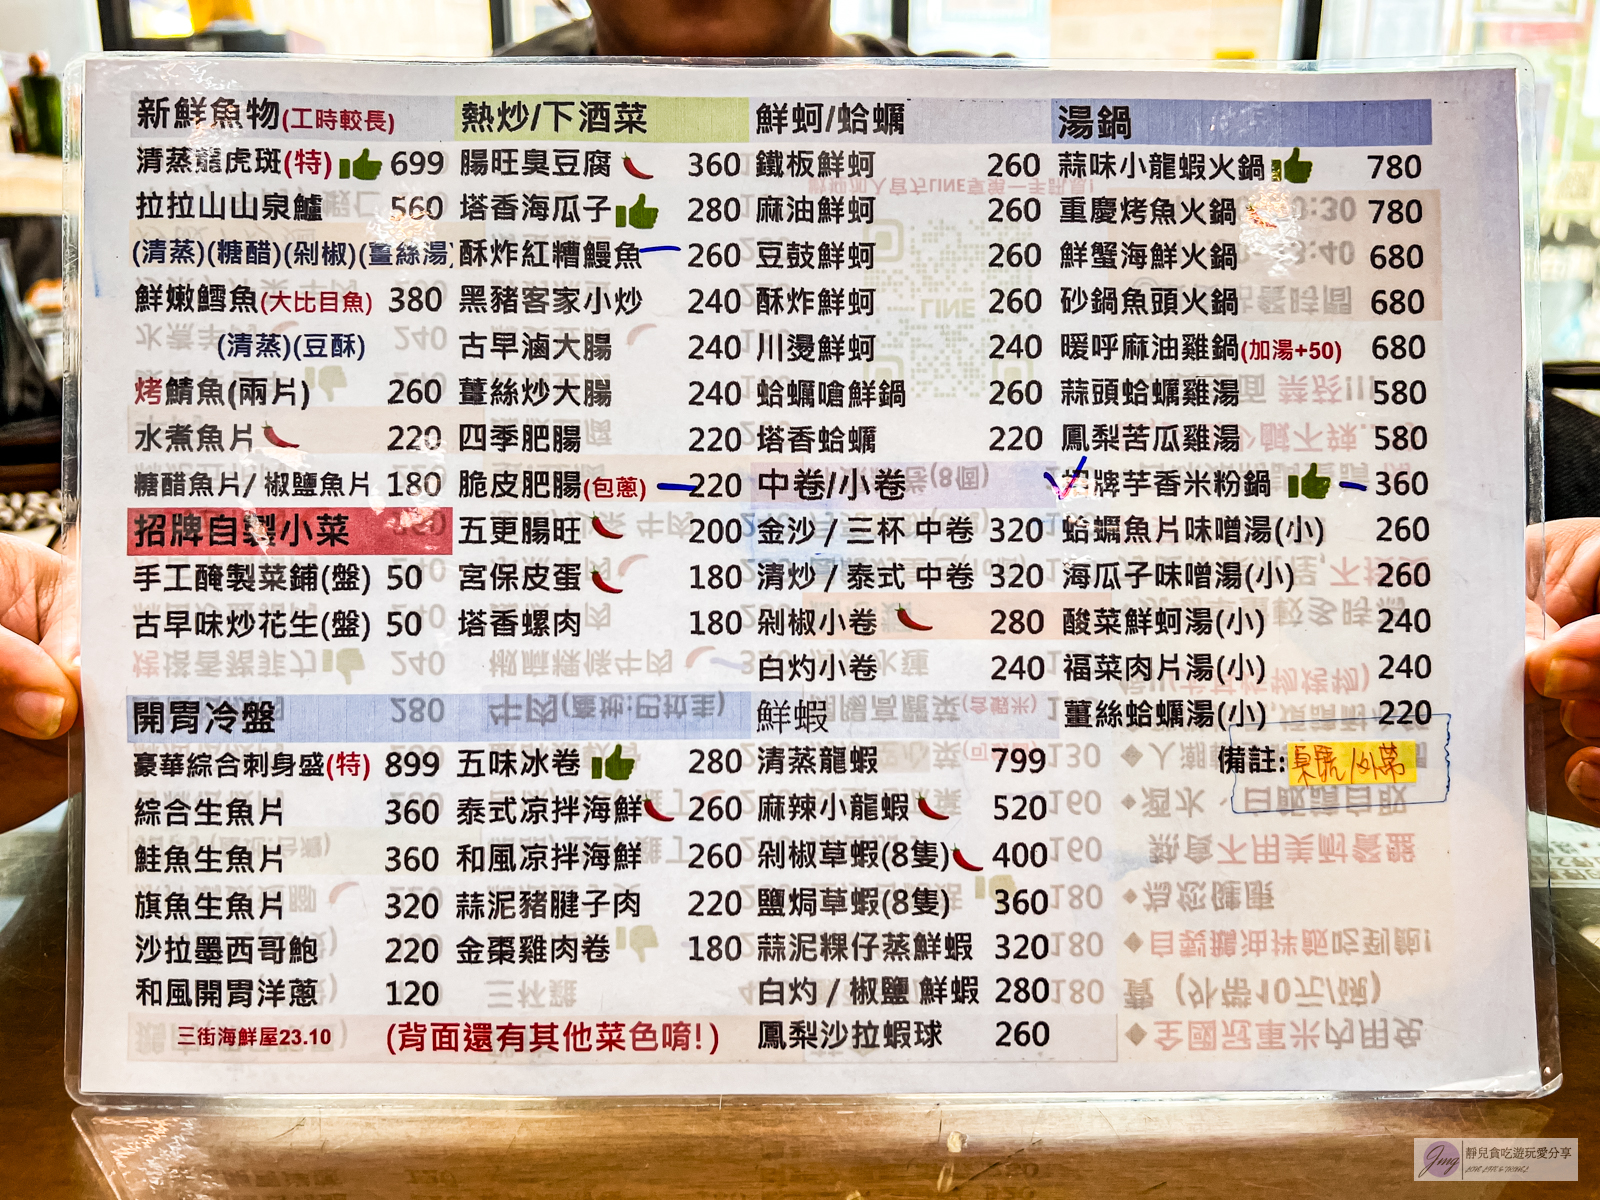 新鮮魚物(工時較長)
清蒸龍虎斑(特) 699
拉拉山山泉鱸 560
(清蒸)(糖醋)(剁椒)(薑絲湯)
鮮嫩鱈魚(大比目魚) 380
(清蒸)(豆酥)
烤鯖魚(兩片) 260
水煮魚片 220
糖醋魚片/椒鹽魚片 180
招牌自製小菜
手工醃製菜餔(盤) 50
古早味炒花生(盤) 50
熱炒/下酒菜
腸旺臭豆腐 360
塔香海瓜子 280
酥炸紅糟鰻魚 260
黑豬客家小炒 240
古早滷大腸 240
薑絲炒大腸 240
四季肥腸 220
脆皮肥腸(包蔥) 220
五更腸旺 200
宮保皮蛋 180
塔香螺肉 180
鮮蚵/蛤蠣
鐵板鮮蚵 260
麻油鮮蚵 260
豆鼓鮮蚵 260
酥炸鮮蚵 260
川燙鮮蚵 240
蛤蠣嗆鮮鍋 260
塔香蛤蠣 220
中卷/小卷
金沙 / 三杯 中卷 320
清炒 / 泰式 中卷 320
剁椒小卷 280
白灼小卷 240
湯鍋
蒜味小龍蝦火鍋 780
重慶烤魚火鍋 780
鮮蟹海鮮火鍋 680
砂鍋魚頭火鍋 680
暖呼麻油雞鍋(加湯+50) 680
蒜頭蛤蠣雞湯 580
鳳梨苦瓜雞湯 580
招牌芋香米粉鍋 360
蛤蠣魚片味噌湯(小) 260
海瓜子味噌湯(小) 260
酸菜鮮蚵湯(小) 240
福菜肉片湯(小) 240
薑絲蛤蠣湯(小) 220
備註: 桌號/外帶
開胃冷盤
豪華綜合刺身盛(特) 899
綜合生魚片 360
鮭魚生魚片 360
旗魚生魚片 320
沙拉墨西哥鮑 220
和風開胃洋蔥 120
五味冰卷 280
泰式凉拌海鮮 260
和風凉拌海鮮 260
蒜泥豬腱子肉 220
金棗雞肉卷 180
鮮蝦
清蒸龍蝦 799
麻辣小龍蝦 520
剁椒草蝦(8隻) 400
鹽焗草蝦(8隻) 360
蒜泥粿仔蒸鮮蝦 320
白灼 / 椒鹽 鮮蝦 280
鳳梨沙拉蝦球 260
三街海鮮屋23.10
(背面還有其他菜色唷!)
Jmg 靜兒貪吃遊玩愛分享